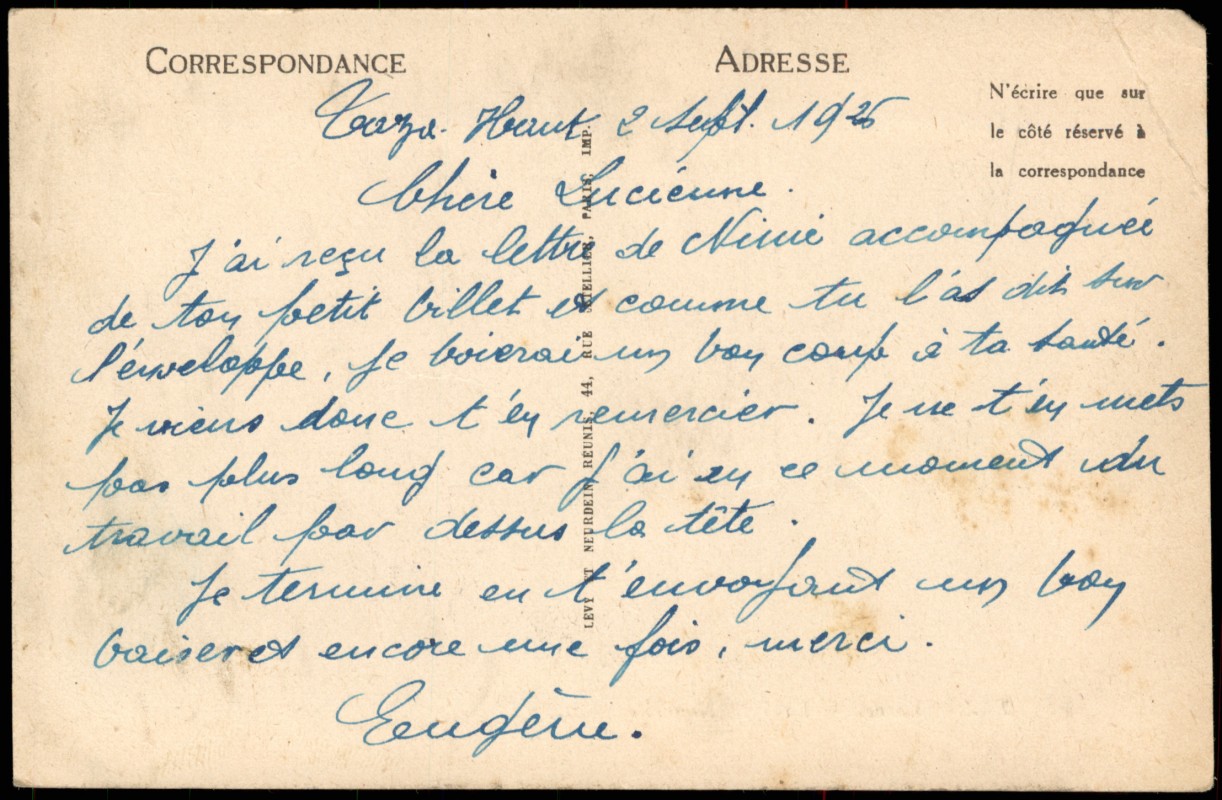 CORRESPONDANCE
ADRESSE
N'écrire que sur
le côté réservé à
la correspondance
Taza-Haut 2 Sept. 1926
Chère Lucienne.
J'ai reçu la lettre de Ninie accompagnée
de ton petit billet et comme tu l'as dit sur
l'enveloppe, je boierai un bon coup à ta santé.
Je viens donc t'en remercier. Je ne t'en mets
pas plus long car j'ai en ce moment du
travail par dessus la tête.
Je termine en t'envoyant un bon
baiser et encore une fois, merci.
Eugène.
LEVY ET NEURDEIN REUNIS 44, RUE LETELLIER, PARIS, IMP.